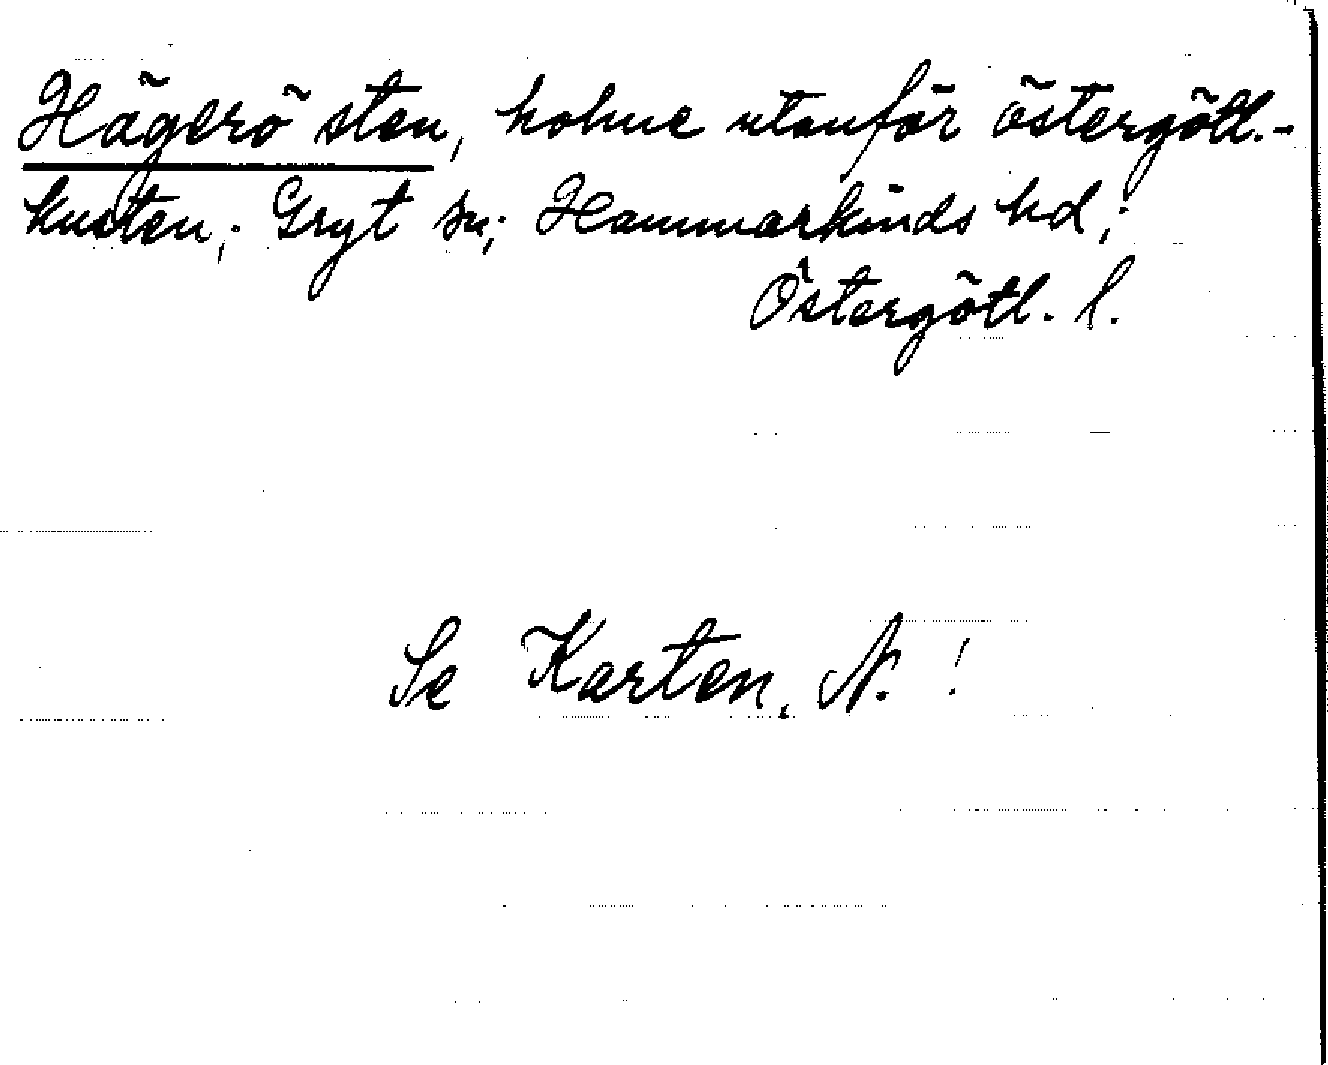 Hägerö sten, holme utanför östergötl.-
kusten; Gryt sn; Hammarkinds hd;
Östergötl. l.
Se Karten, N. !